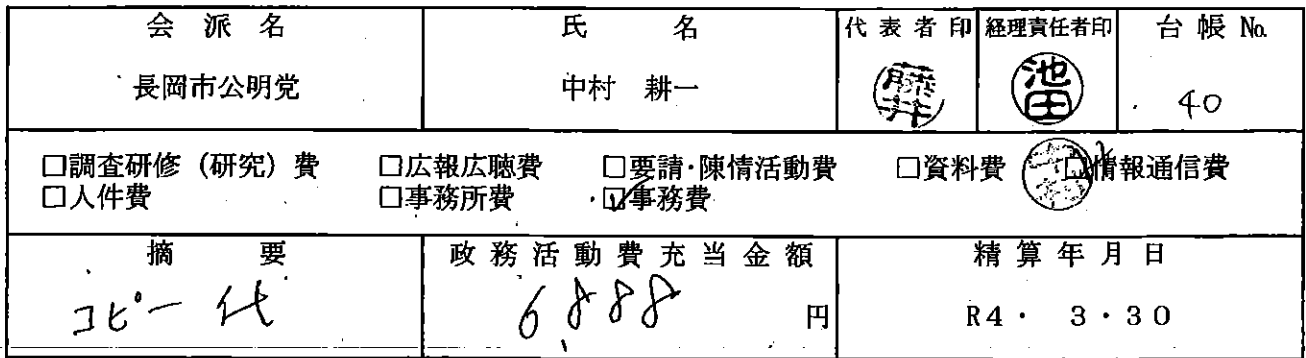 会派名 氏名 代表者印 経理責任者印 台帳 No.
長岡市公明党 中村 耕一 藤井 池田 40
□調査研修（研究）費 □広報広聴費 □要請・陳情活動費 □資料費 □情報通信費
□人件費 □事務所費 ☑事務費
摘要 政務活動費充当金額 精算年月日
コピー代 6888 円 R4・3・30